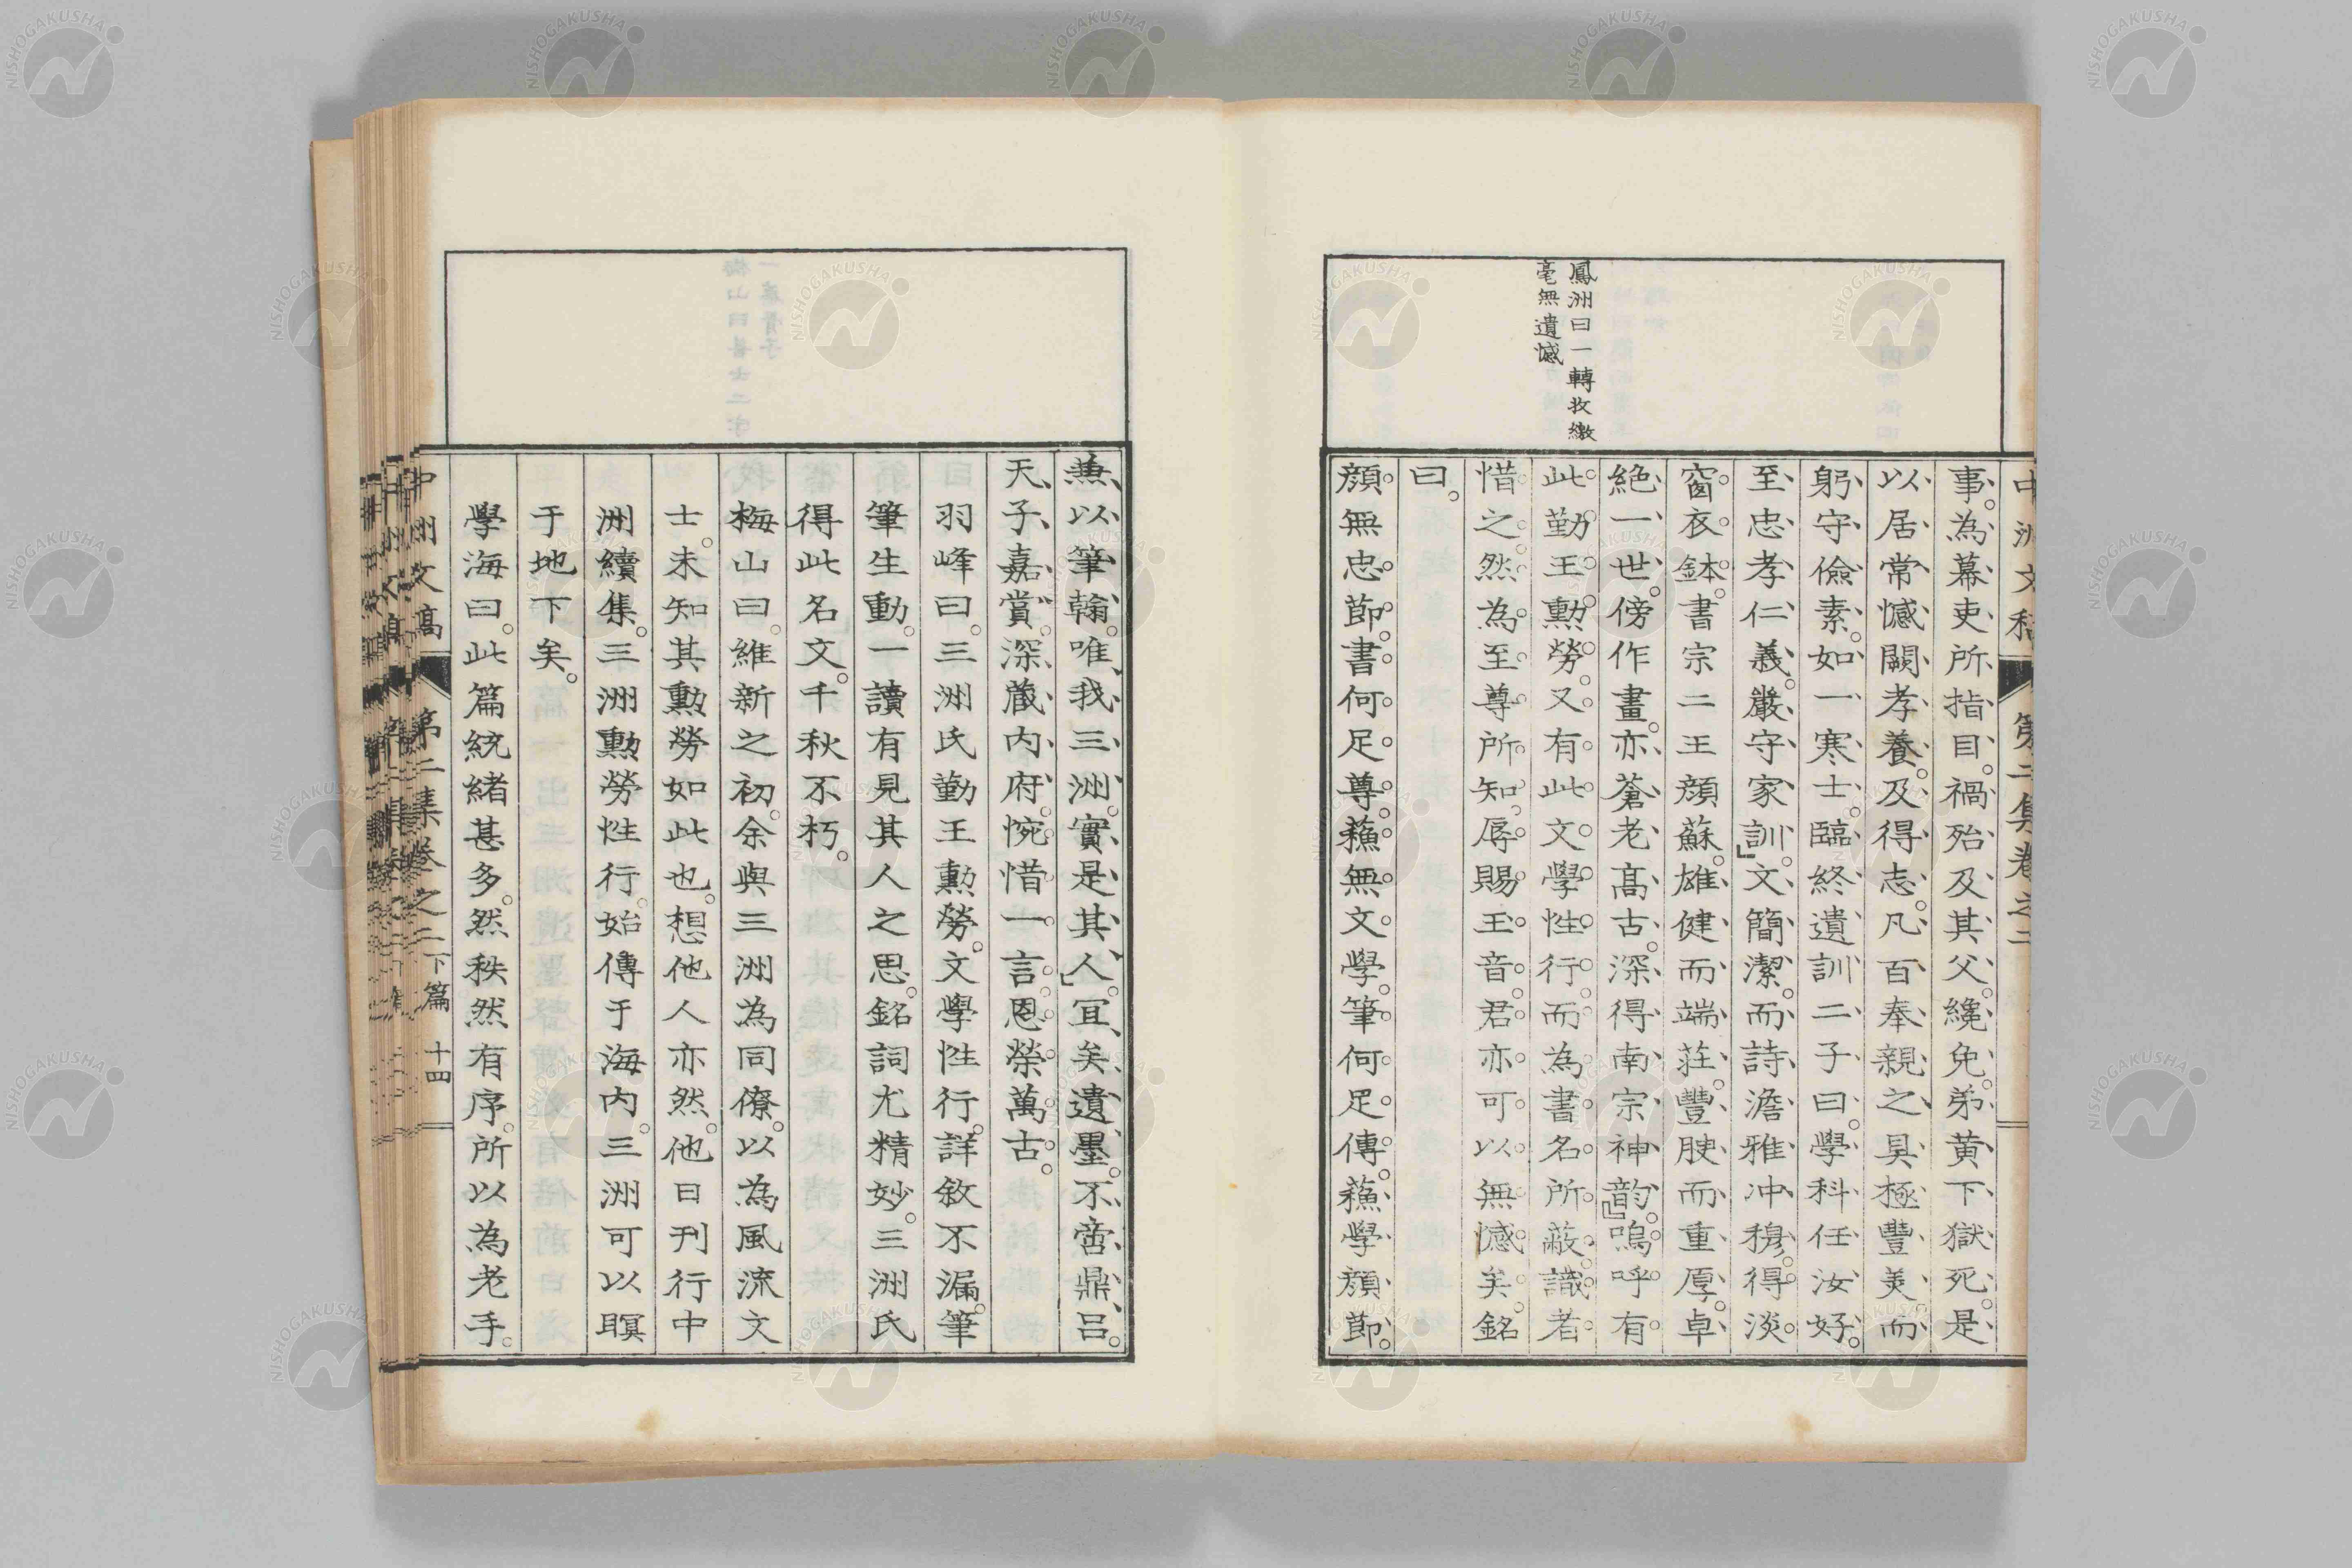 鳳洲曰一轉收繳
毫無遺憾
中洲文稿 第二集卷之二
事。為幕吏所指目。禍殆及其父。纔免。弟黄下獄死。是
以居常憾闕孝養。及得志。凡百奉親之具極豐美。而
躬守儉素。如一寒士。臨終遺訓二子曰。學科任汝好。
至忠孝仁義。嚴守家訓。文簡潔。而詩澹雅冲穆。得淡
窗衣鉢。書宗二王顔蘇。雄健而端莊。豐腴而重厚。卓
絶一世。傍作畫。亦蒼老高古。深得南宗神韵。嗚呼有
此勤王勲勞。又有此文學性行。而為書名所蔽。識者
惜之。然為至尊所知。辱賜玉音。君亦可以無憾矣。銘
曰。
顔無忠節。書何足尊。蘓無文學。筆何足傳。蘓學顔節。
兼以筆翰。唯我三洲。實是其人。宜矣遺墨。不啻鼎呂。
天子嘉賞。深蔵内府。惋惜一言。恩榮萬古。
羽峰曰。三洲氏勤王勲勞。文學性行。詳敘不漏。筆
筆生動。一讀有見其人之思。銘詞尤精妙。三洲氏
得此名文。千秋不朽。
梅山曰。維新之初。余與三洲為同僚。以為風流文
士。未知其勲勞如此也。想他人亦然。他日刊行中
洲續集。三洲勲勞性行。始傳于海内。三洲可以瞑
于地下矣。
學海曰。此篇統緒甚多。然秩然有序。所以為老手。
中洲文稿 第二集卷之二 下篇 十四